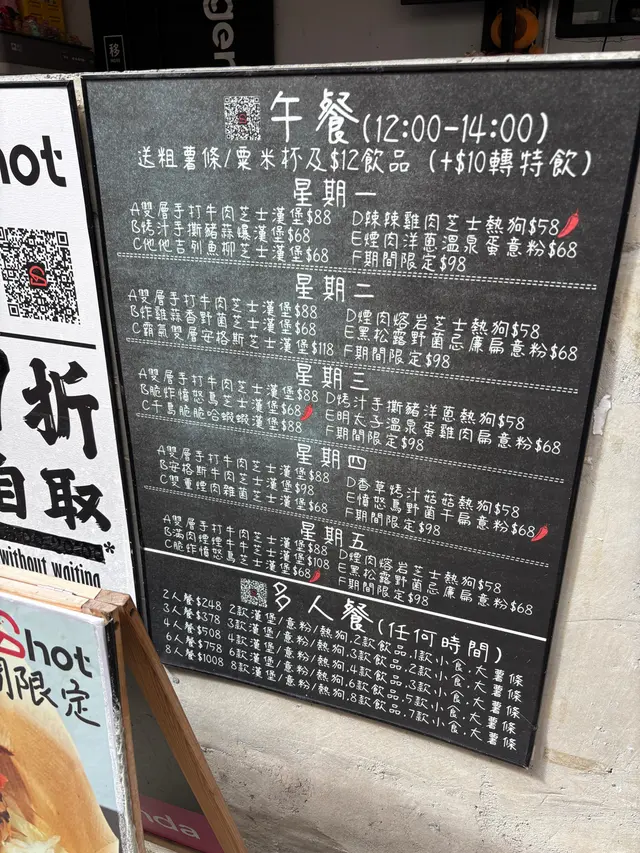 移
午餐(12:00-14:00)
送粗薯條/粟米杯及$12飲品 (+$10轉特飲)
星期一
A雙層手打牛肉芝士漢堡$88
B烤汁手撕豬蒜爆漢堡$68
C他他吉列魚柳芝士漢堡$68
D辣辣雞肉芝士熱狗$58
E煙肉洋蔥溫泉蛋意粉$68
F期間限定$98
星期二
A雙層手打牛肉芝士漢堡$88
B炸雞蒜香野菌芝士漢堡$68
C霸氣雙層安格斯芝士漢堡$118
D煙肉熔岩芝士熱狗$58
E黑松露野菌忌廉扁意粉$68
F期間限定$98
星期三
A雙層手打牛肉芝士漢堡$88
B脆炸憤怒鳥芝士漢堡$68
C千島脆脆哈蝦蝦漢堡$88
D烤汁手撕豬洋蔥熱狗$58
E明太子溫泉蛋雞肉扁意粉$68
F期間限定$98
星期四
A雙層手打牛肉芝士漢堡$88
B安格斯牛肉芝士漢堡$98
C雙重煙肉雜菌芝士漢堡$68
D香草烤汁菇菇熱狗$58
E憤怒鳥野菌干扁意粉$68
F期間限定$98
星期五
A雙層手打牛肉芝士漢堡$88
B滿肉煙煙牛牛芝士漢堡$108
C脆炸憤怒鳥芝士漢堡$68
D煙肉熔岩芝士熱狗$58
E黑松露野菌忌廉扁意粉$68
F期間限定$98
多人餐(任何時間)
2人餐$248 2款漢堡/意粉/熱狗,2款飲品,1款小食,大薯條
3人餐$378 3款漢堡/意粉/熱狗,3款飲品,2款小食,大薯條
4人餐$508 4款漢堡/意粉/熱狗,4款飲品,3款小食,大薯條
6人餐$758 6款漢堡/意粉/熱狗,6款飲品,5款小食,大薯條
8人餐$1008 8款漢堡/意粉/熱狗,8款飲品,7款小食,大薯條
hot
折
自取*
without waiting
Shot
間限定
nda